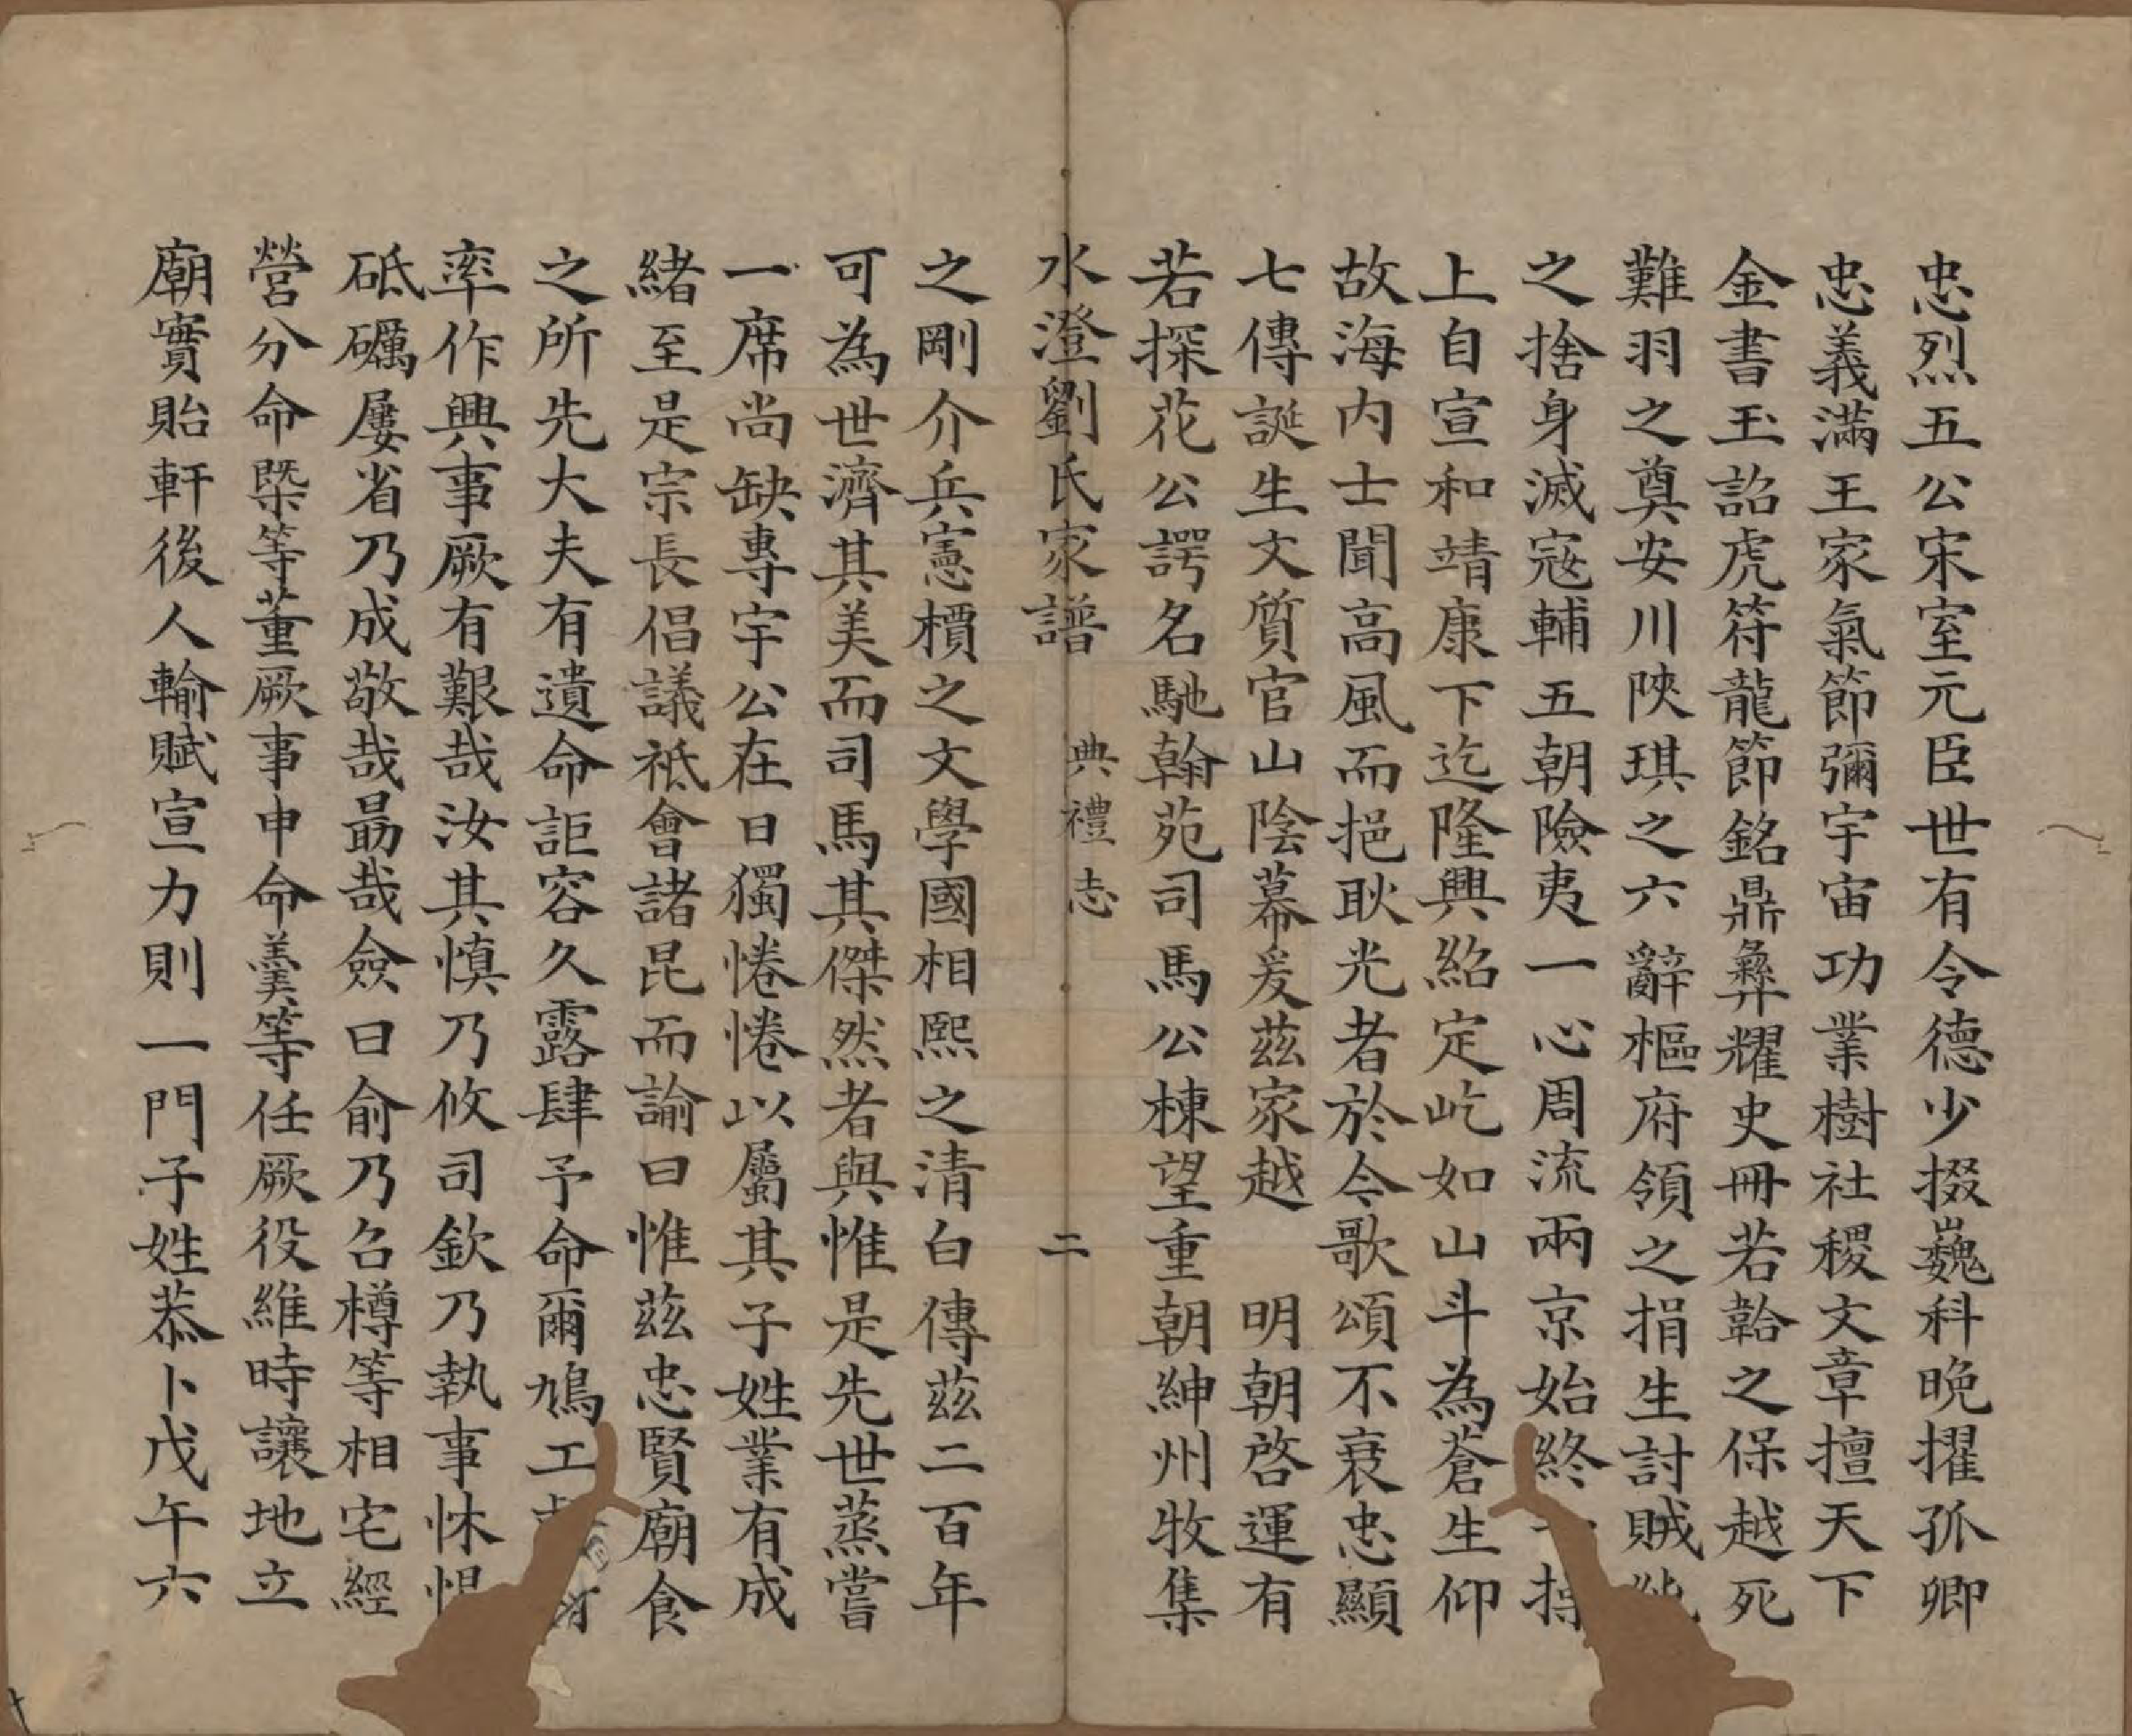 忠烈五公宋室元臣世有令德少掇巍科晚擢孤卿
忠義滿王家氣節彌宇宙功業樹社稷文章擅天下
金書玉詔虎符龍節銘鼎彝耀史冊若韐之保越死
難羽之奠安川陝琪之六辭樞府領之捐生討賊
之捨身滅寇輔五朝險夷一心周流兩京始終一操
上自宣和靖康下迄隆興紹定屹如山斗為蒼生仰
故海内士聞高風而挹耿光者於今歌頌不衰忠顯
七傳誕生文質官山陰幕爰茲家越 明朝啓運有
若探花公諤名馳翰苑司馬公棟望重朝紳州牧集
水澄劉氏家譜 典禮志 二
之剛介兵憲檟之文學國相熙之清白傳茲二百年
可為世濟其美而司馬其傑然者與惟是先世蒸嘗
一席尚缺專宇公在日獨惓惓以屬其子姓業有成
緒至是宗長倡議祗會諸昆而諭曰惟茲忠賢廟食
之所先大夫有遺命詎容久露肆予命爾鳩工
率作興事厥有艱哉汝其慎乃攸司欽乃執事怵惕
砥礪屢省乃成敬哉勗哉僉曰俞乃召樽等相宅經
營分命槩等董厥事申命羹等任厥役維時讓地立
廟實貽軒後人輸賦宣力則一門子姓恭卜戊午六